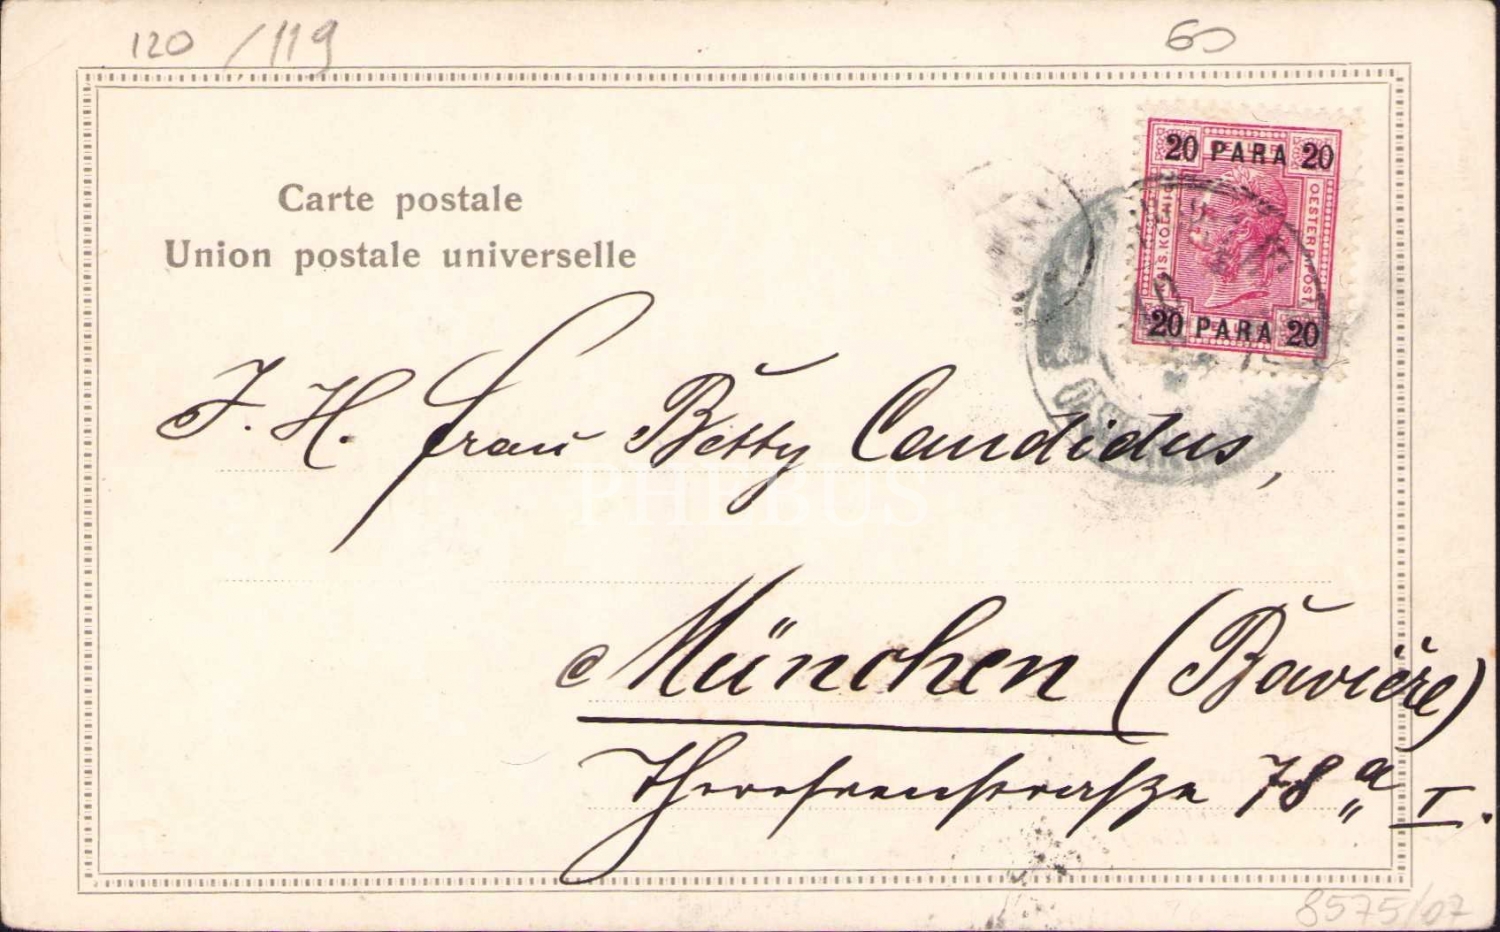 120 / 119
60
20 PARA 20
KAIS. KOENIGL. OESTERR. POST.
20 PARA 20
Carte postale
Union postale universelle
J. H. Frau Betty Candidus,
PHEBUS
München (Bavière)
Theresienstraße 78 a I.
8575/07